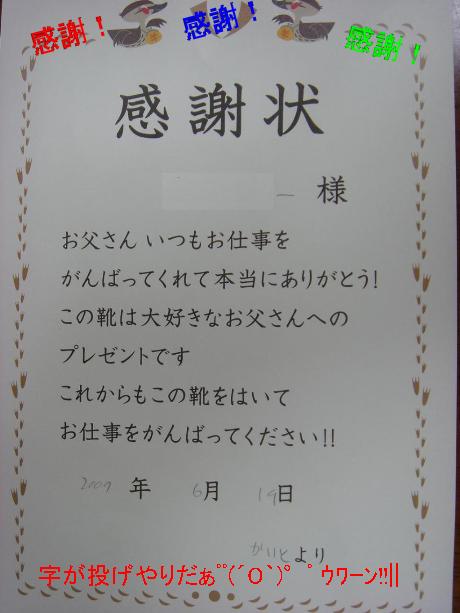 感謝！ 感謝！ 感謝！
感謝状
様
お父さん いつもお仕事を
がんばってくれて本当にありがとう！
この靴は大好きなお父さんへの
プレゼントです
これからもこの靴をはいて
お仕事をがんばってください!!
2009 年 6月 19日
かいとより
字が投げやりだぁ゜゜(´O`)°゜ウワーン!!||